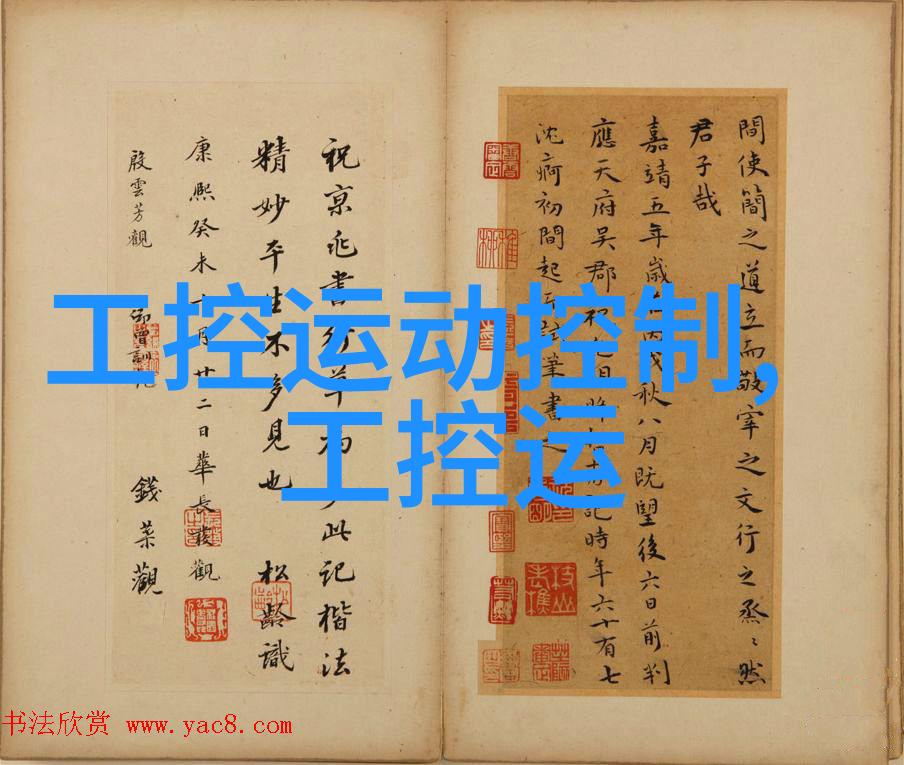 工控运动控制,
工控运
間使簡之道立而敬宰之文行之烝〻然
君子哉
嘉靖五年歲丙戌秋八月既望後六日前判
應天府吳郡記時年六十有七
沈痾初間起試筆書
祝京兆書行草為多此記楷法
精妙平生不多見也 松齡識
康熙癸未十月廿二日華長發觀
殷雲芳觀 錢葉觀
书法欣赏 www.yac8.com